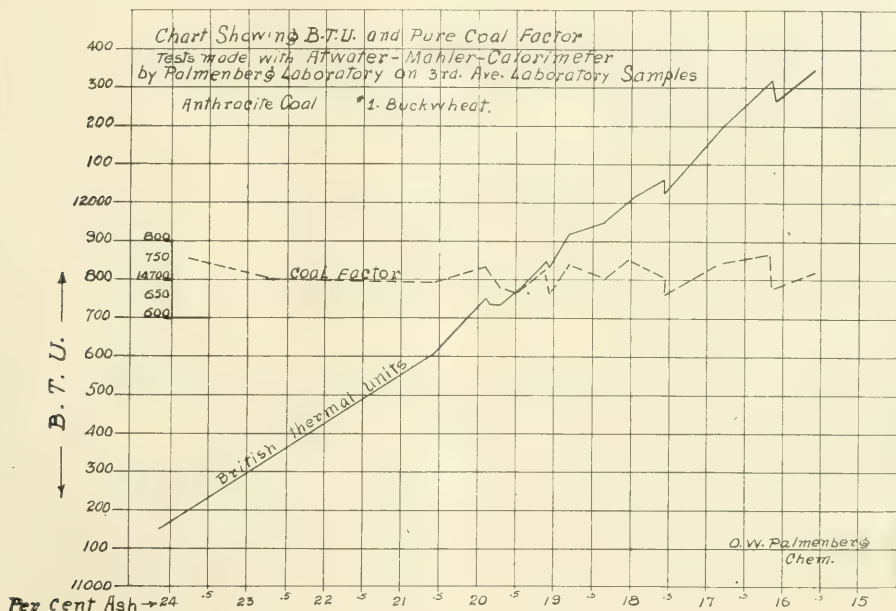 Chart Showing B.T.U. and Pure Coal Factor
Tests made with Atwater-Mahler-Calorimeter
by Palmenberg Laboratory on 3rd. Ave. Laboratory Samples
Anthracite Coal #1. Buckwheat.
400
300
200
100
12000
900
800
700
600
500
400
300
200
100
11000
800
750
14700
650
600
Coal Factor
British thermal units
B.T.U.
O.W. Palmenberg
Chem.
Per Cent Ash → 24 .5 23 .5 22 .5 21 .5 20 .5 19 .5 18 .5 17 .5 16 .5 15